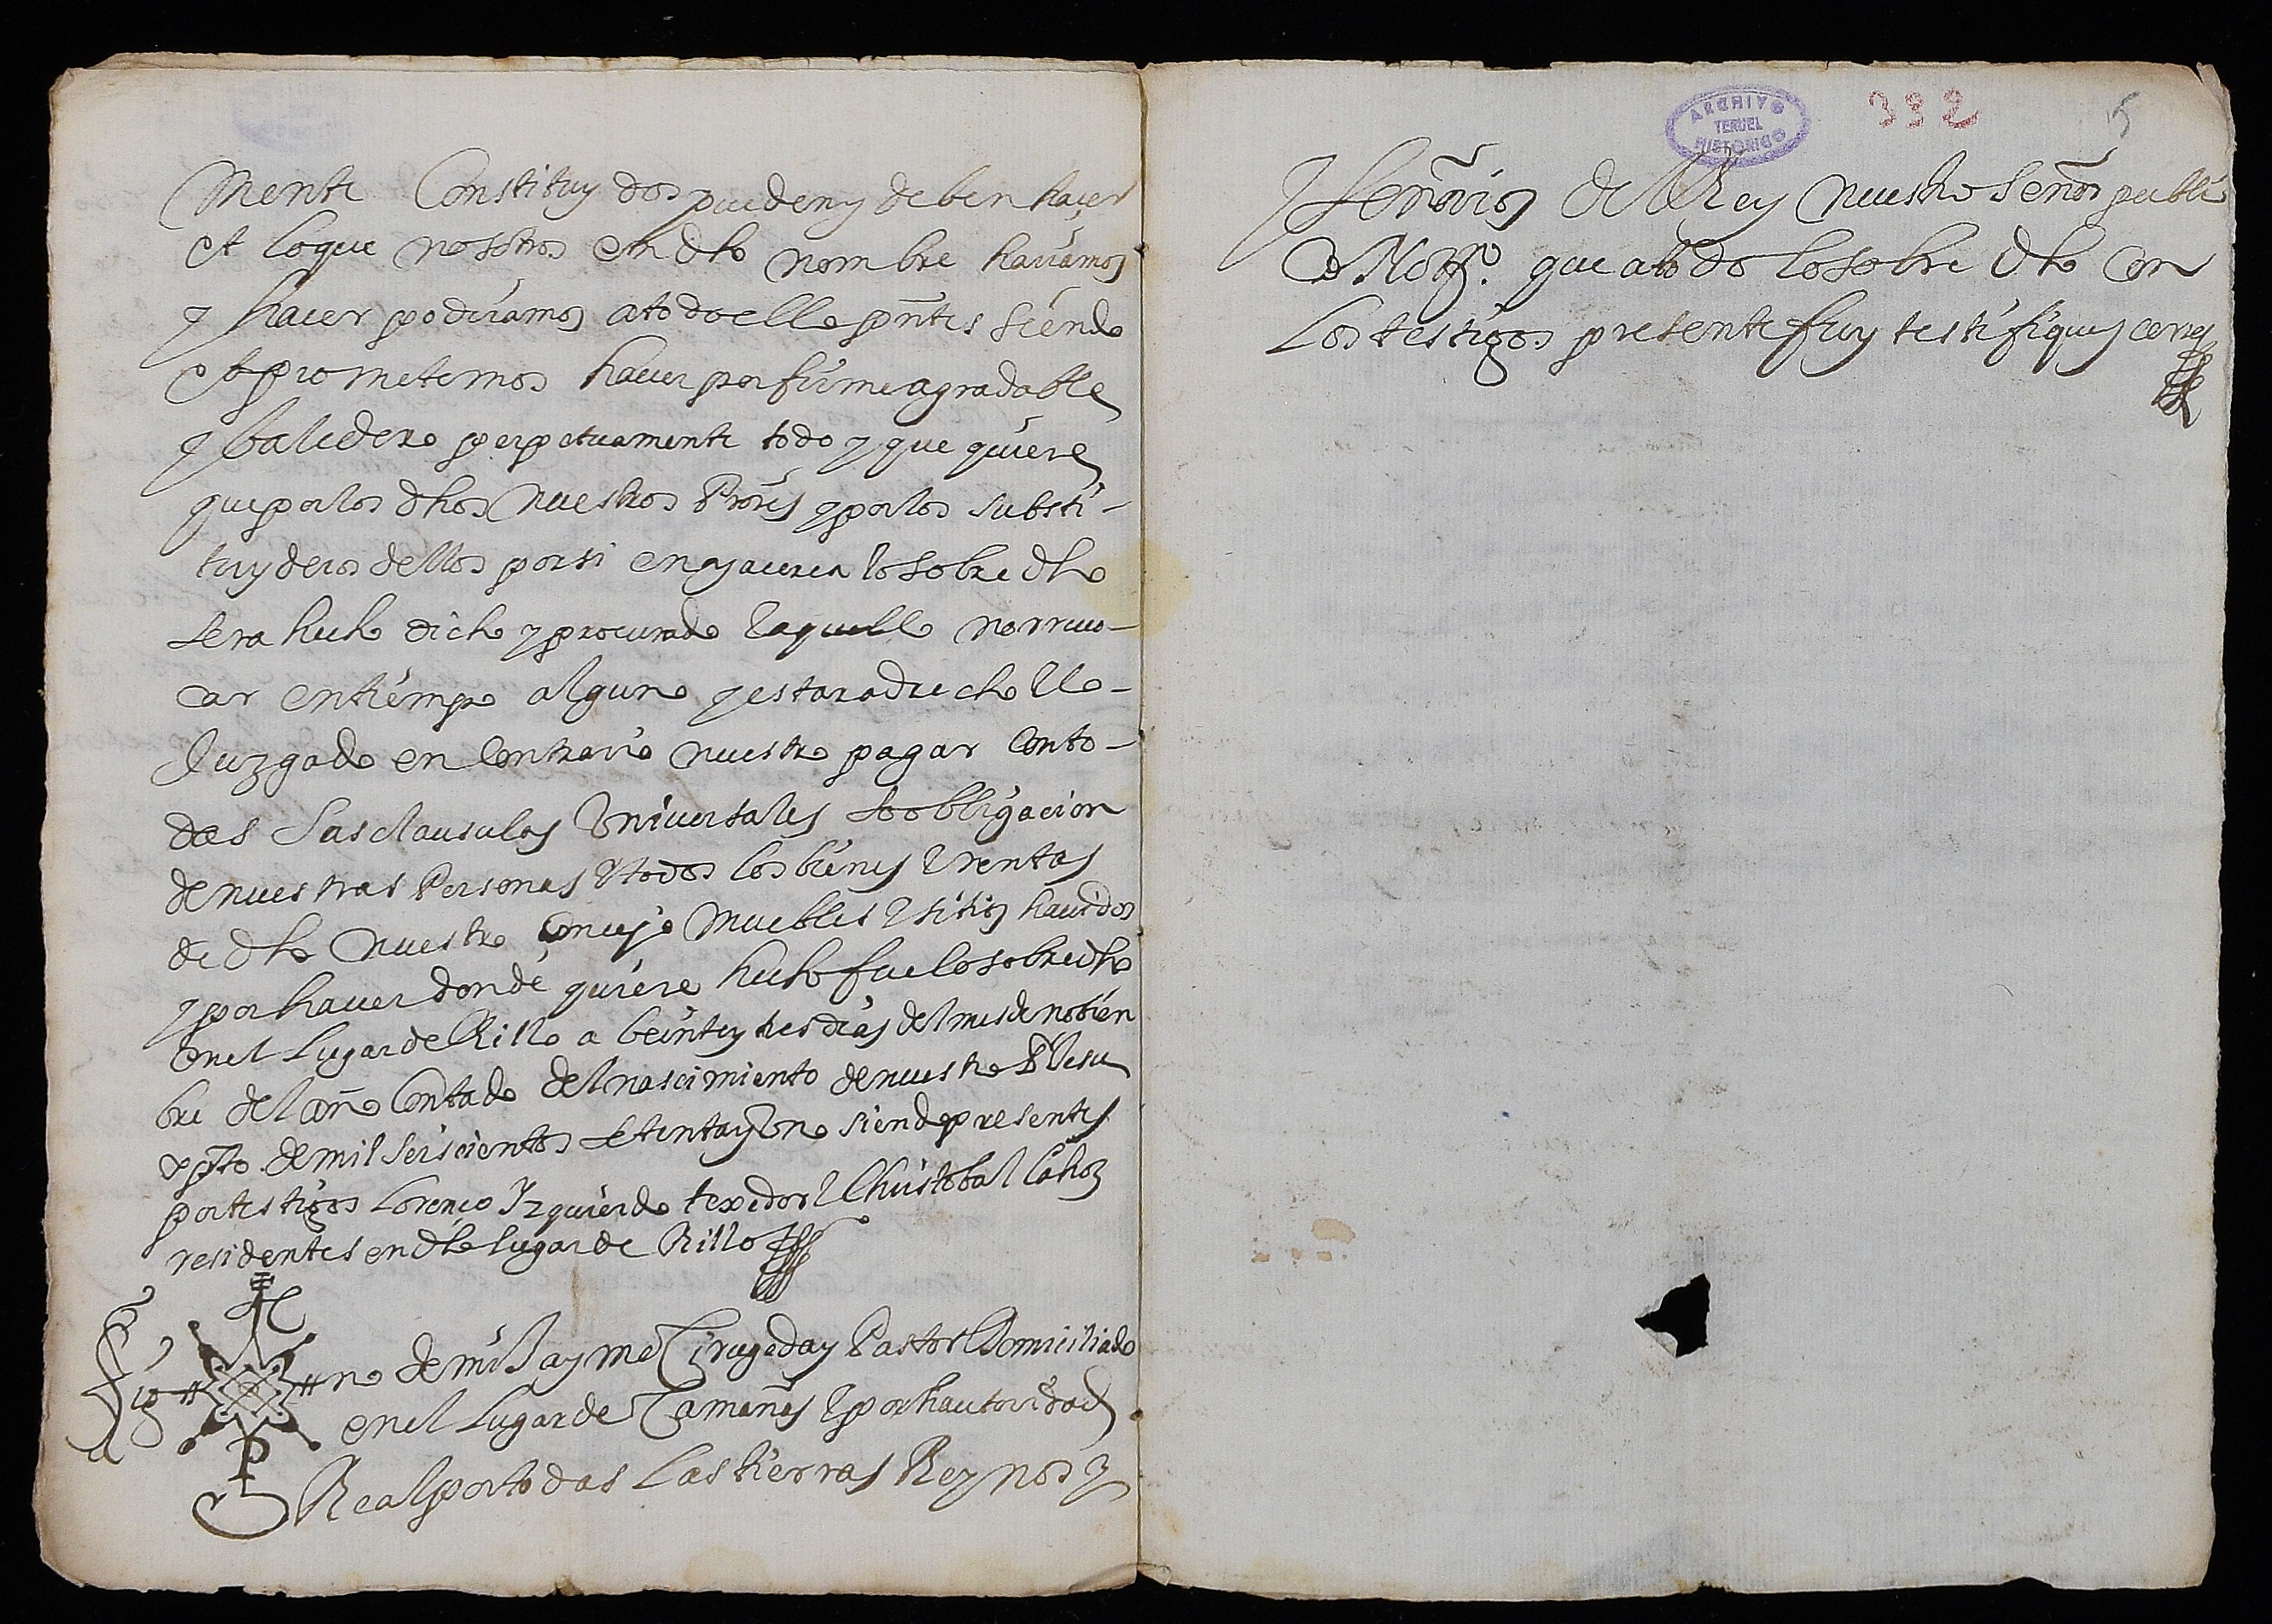 mente Constituydos pueden y deben hacer
et lo que nosotros en dho nombre hariamos
y hacer podriamos a todo ello pntes siendo
et prometemos hauer por firme agradable
y balidero perpetuamente todo y que quiere
que por los dhos nuestros Prores y por los substi-
tuyderos dellos por si en y acerca lo sobre dho
sera hecho dicho y procurado y aquello no reuo-
car en tiempo alguno y estar a drecho y lo-
Juzgado en Contrario nuestro pagar con to-
das sus clausulas Vniuersales so obligacion
de nuestras Personas y todos los bienes y rentas
de dho nuestro concejo muebles y sitios hauidos
y por hauer donde quiere hecho fue lo sobredho
en el Lugar de Rillo a beinte y tres dias del mes de nobien
bre del año Contado del nascimiento de nuestro Sr Jesu
xpto de mil seiscientos setenta y Vno siendo presentes
por testigos Lorenço Yzquierdo texedor y Christobal Lahoz
residentes en dho lugar de Rillo
Sig no de mi Jayme Çirugeda y Pastor Domiciliado
en el Lugar de Camañas y por hautoridad
Real por todas las tierras Reynos y
ARCHIVO
TERUEL
HISTORICO
392
5
Señorios del Rey nuestro Señor publi
co Notto. que a todo lo sobre dho con
los testigos presente fuy testifique y cerre